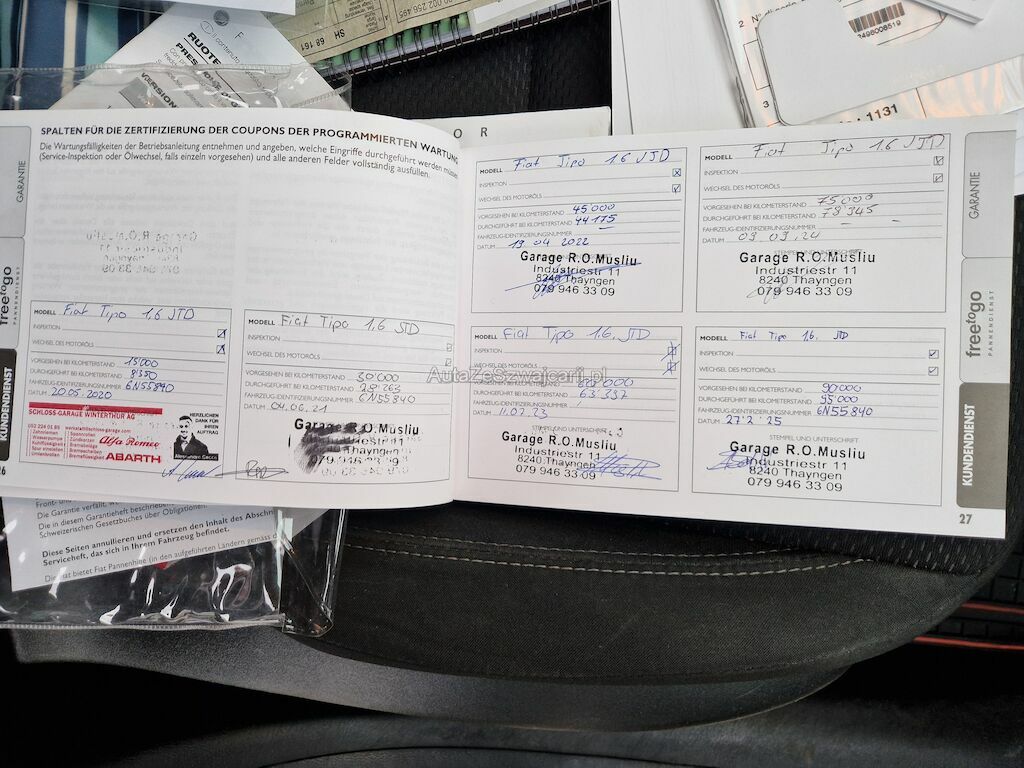 RUOTE
VERSION
SH
68 161
00 002 256 495
3498008519
1131
O R
SPALTEN FÜR DIE ZERTIFIZIERUNG DER COUPONS DER PROGRAMMIERTEN WARTUNG
Die Wartungsfälligkeiten der Betriebsanleitung entnehmen und angeben, welche Eingriffe durchgeführt werden müssen
(Service-Inspektion oder Ölwechsel, falls einzeln vorgesehen) und alle anderen Felder vollständig ausfüllen.
GARANTIE
freetogo
PANNENDIENST
KUNDENDIENST
26
MODELL Fiat Tipo 1,6 JTD
INSPEKTION
WECHSEL DES MOTORÖLS
VORGESEHEN BEI KILOMETERSTAND 15'000
DURCHGEFÜHRT BEI KILOMETERSTAND 8'350
FAHRZEUG-IDENTIFIZIERUNGSNUMMER 6N55840
DATUM 20.05.2020
SCHLOSS-GARAGE WINTERTHUR AG
Alfa Romeo
ABARTH
HERZLICHEN
DANK FÜR
IHREN
AUFTRAG
MODELL Fiat Tipo 1,6 JTD
INSPEKTION
WECHSEL DES MOTORÖLS
VORGESEHEN BEI KILOMETERSTAND 30'000
DURCHGEFÜHRT BEI KILOMETERSTAND 28'263
FAHRZEUG-IDENTIFIZIERUNGSNUMMER 6N55840
DATUM 04.06.21
Garage R.O.Musliu
MODELL Fiat Tipo 1.6 JTD
INSPEKTION
WECHSEL DES MOTORÖLS
VORGESEHEN BEI KILOMETERSTAND 45'000
DURCHGEFÜHRT BEI KILOMETERSTAND 44'175
FAHRZEUG-IDENTIFIZIERUNGSNUMMER
DATUM 19.04.2022
Garage R.O.Musliu
Industriestr 11
8240 Thayngen
079 946 33 09
MODELL Fiat Tipo 1.6 JTD
INSPEKTION
WECHSEL DES MOTORÖLS
VORGESEHEN BEI KILOMETERSTAND 75'000
DURCHGEFÜHRT BEI KILOMETERSTAND 78'345
FAHRZEUG-IDENTIFIZIERUNGSNUMMER
DATUM 03.09.24
Garage R.O.Musliu
Industriestr 11
8240 Thayngen
079 946 33 09
MODELL Fiat Tipo 1.6. JTD
INSPEKTION
WECHSEL DES MOTORÖLS
VORGESEHEN BEI KILOMETERSTAND 60'000
DURCHGEFÜHRT BEI KILOMETERSTAND 63'337
FAHRZEUG-IDENTIFIZIERUNGSNUMMER
DATUM 11.07.23
STEMPEL UND UNTERSCHRIFT
Garage R.O.Musliu
Industriestr 11
8240 Thayngen
079 946 33 09
MODELL Fiat Tipo 1.6. JTD
INSPEKTION
WECHSEL DES MOTORÖLS
VORGESEHEN BEI KILOMETERSTAND 90'000
DURCHGEFÜHRT BEI KILOMETERSTAND 95'000
FAHRZEUG-IDENTIFIZIERUNGSNUMMER 6N55840
DATUM 27'2'25
STEMPEL UND UNTERSCHRIFT
Garage R.O.Musliu
Industriestr 11
8240 Thayngen
079 946 33 09
GARANTIE
freetogo
PANNENDIENST
KUNDENDIENST
27
AutaZeSzwajcarii.pl
Die Garantie verfällt,
Die in diesem Garantieheft beschriebenen
Schweizerischen Gesetzbuches über Obligationen
Diese Seiten annullieren und ersetzen den Inhalt des Abschn
Serviceheft, das sich in Ihrem Fahrzeug befindet.
Fiat bietet Fiat Pannenhilfe (in den aufgeführten Ländern gemäss d